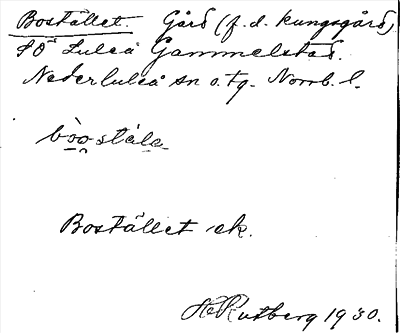 Bostället. Gård (f.d. kungsgård)
SÖ Luleå Gammelstad.
Nederluleå sn o. tg. Norrb. l.
bòostála
Bostället ek.
H. Rutberg 1930.